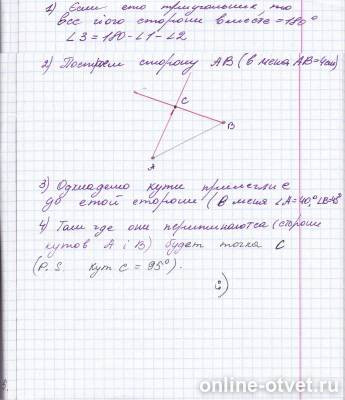 1) Если это триугольник, то
все його стороны вместе = 180°
∠3 = 180 - ∠1 - ∠2
2) Построем сторону AB (в меня AB = 4см)
C
B
A
3) Одкладемо кути прилеглие
до етой сторони (В меня ∠A = 40,°
4) Там где они перитинаютса (сторони
кутов A і B) будет точка C
(P.S. кут C = 95°).
online-otvet.ru